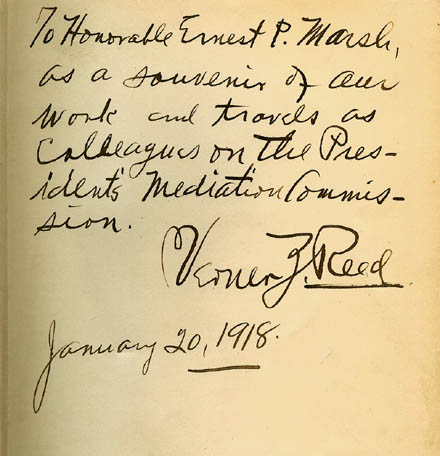 To Honorable Ernest P. Marsh,
as a souvenir of our
work and travels as
Colleagues on the Pres-
ident's Mediation Commis-
sion.
Verner Z. Reed.
January 20, 1918.